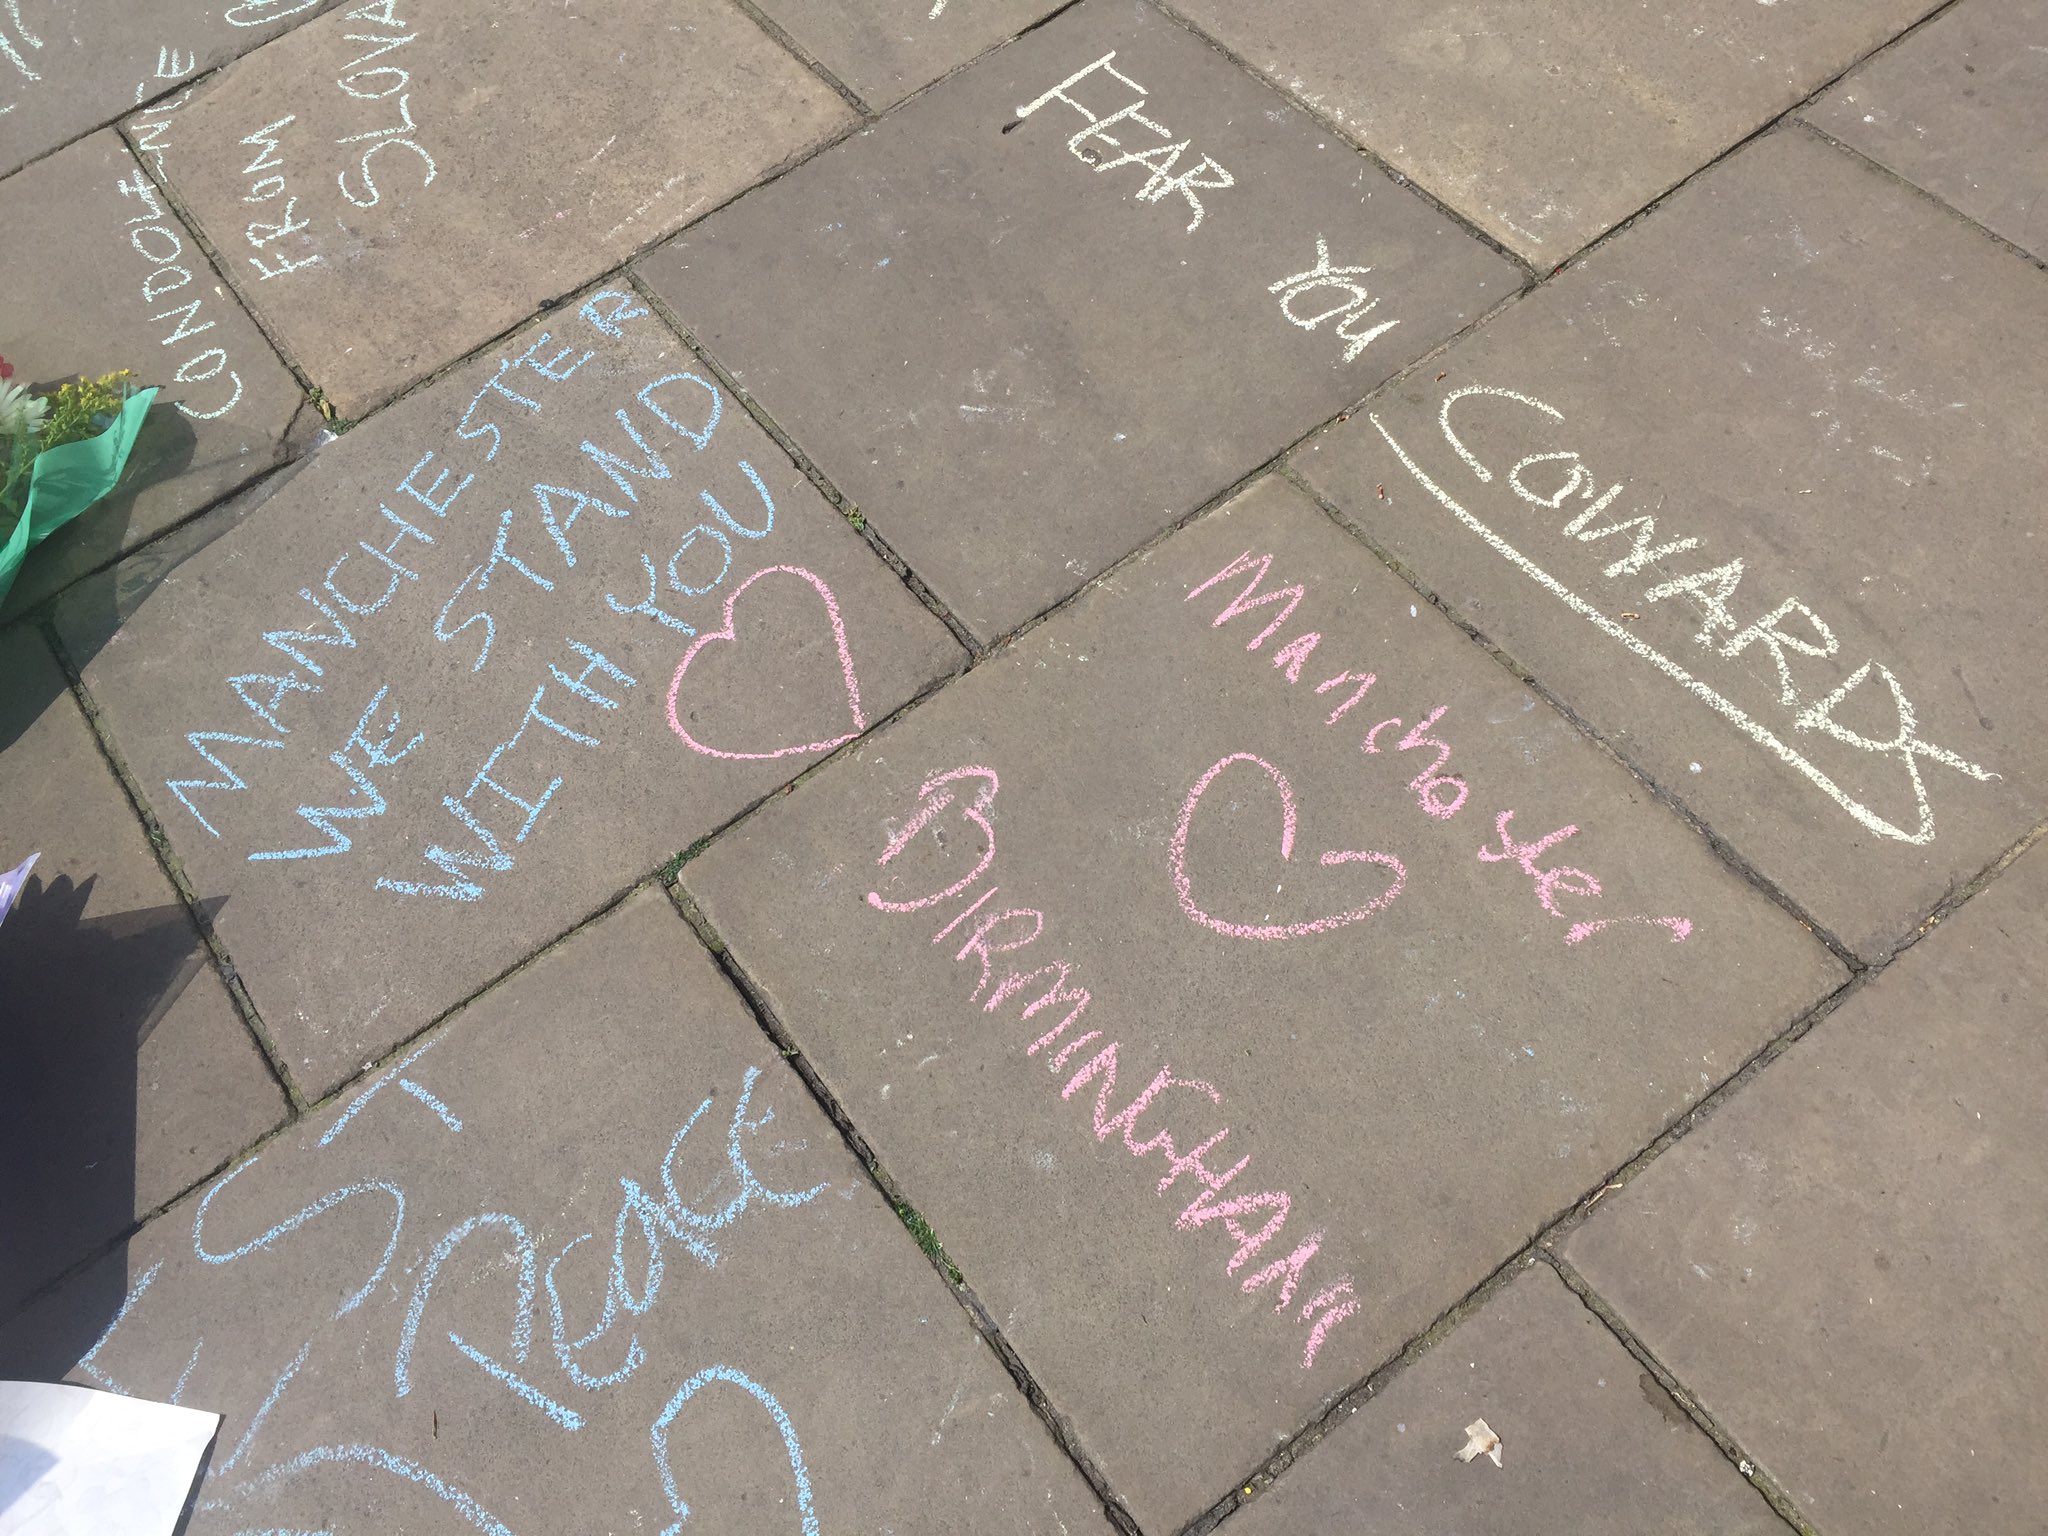 FROM
SLOVA
FEAR
YOU
COWARD
MANCHESTER
WE STAND
WITH YOU
Manchester
BIRMINGHAM
PEACE